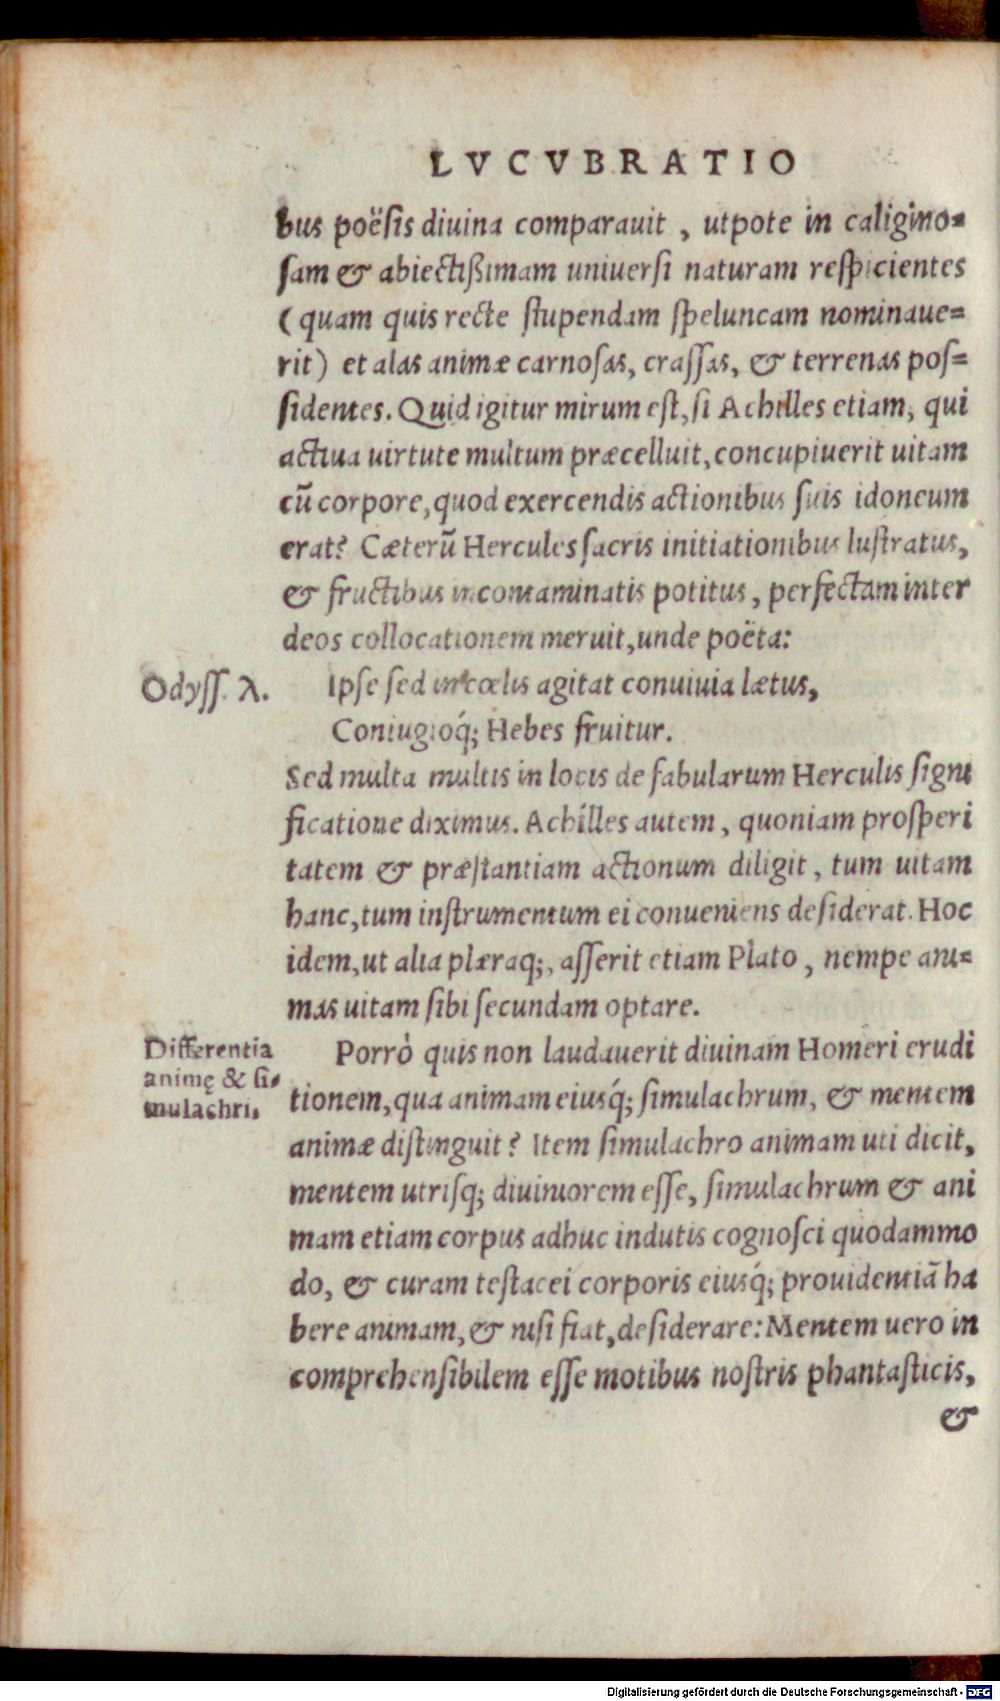 LVCVBRATIO
bus poësis diuina comparauit , utpote in caligino-
sam & abiectißimam uniuersi naturam respicientes
(quam quis recte stupendam speluncam nominaue-
rit) et alas animæ carnosas, crassas, & terrenas pos-
sidentes. Quid igitur mirum est, si Achilles etiam, qui
actiua uirtute multum præcelluit, concupiuerit uitam
cū corpore, quod exercendis actionibus suis idoneum
erat? Cæterū Hercules sacris initiationibus lustratus,
& fructibus incontaminatis potitus, perfectam inter
deos collocationem meruit, unde poëta:
Odyss. λ.
Ipse sed in cœlis agitat conuiuia lætus,
Coniugioq́; Hebes fruitur.
Sed multa multis in locis de fabularum Herculis signi
ficatione diximus. Achilles autem, quoniam prosperi
tatem & præstantiam actionum diligit, tum uitam
hanc, tum instrumentum ei conueniens desiderat. Hoc
idem, ut alia plæraq;, asserit etiam Plato, nempe ani-
mas uitam sibi secundam optare.
Differentia
animę & si-
mulachri.
Porrò quis non laudauerit diuinam Homeri erudi
tionem, qua animam eiusq́; simulachrum, & mentem
animæ distinguit? Item simulachro animam uti dicit,
mentem utrisq; diuiniorem esse, simulachrum & ani
mam etiam corpus adhuc indutis cognosci quodammo
do, & curam testacei corporis eiusq́; prouidentiā ha
bere animam, & nisi fiat, desiderare: Mentem uero in
comprehensibilem esse motibus nostris phantasticis,
&
Digitalisierung gefördert durch die Deutsche Forschungsgemeinschaft - DFG